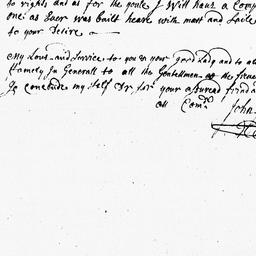 to rights and as for the goule I will have a Comp
one: as Ever was built heare with mast and Saile
to your Desire
My Love and Service to you & your good Lady and to al
Famely In Generall to all the Gentellmen
I conclude my self Sr for your assured friend a
att Com
John